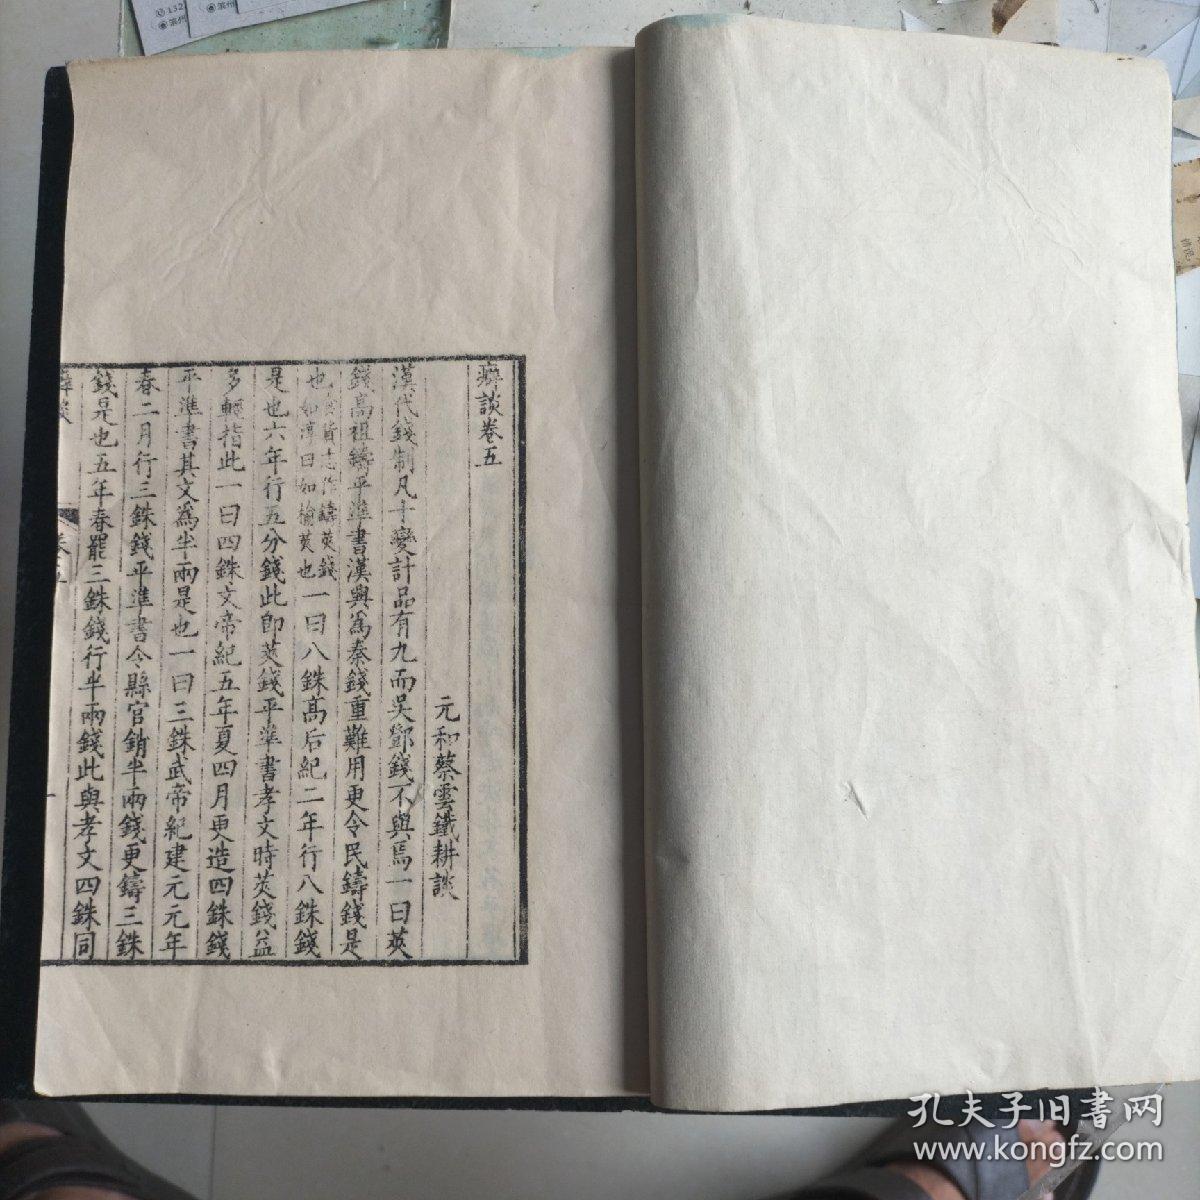 癖談卷五
元和蔡雲鐵耕談
漢代錢制凡十變計品有九而吳鄧錢不與焉一曰莢
錢高祖鑄平準書漢興為秦錢重難用更令民鑄錢是
也食貨志作鑄莢錢如淳曰如榆莢也一曰八銖高后紀二年行八銖錢
是也六年行五分錢此即莢錢平準書孝文時莢錢益
多輕指此一曰四銖文帝紀五年夏四月更造四銖錢
平準書其文為半兩是也一曰三銖武帝紀建元元年
春二月行三銖錢平準書令縣官銷半兩錢更鑄三銖
錢是也五年春罷三銖錢行半兩錢此與孝文四銖同
孔夫子旧书网
www.kongfz.com
132
滨州